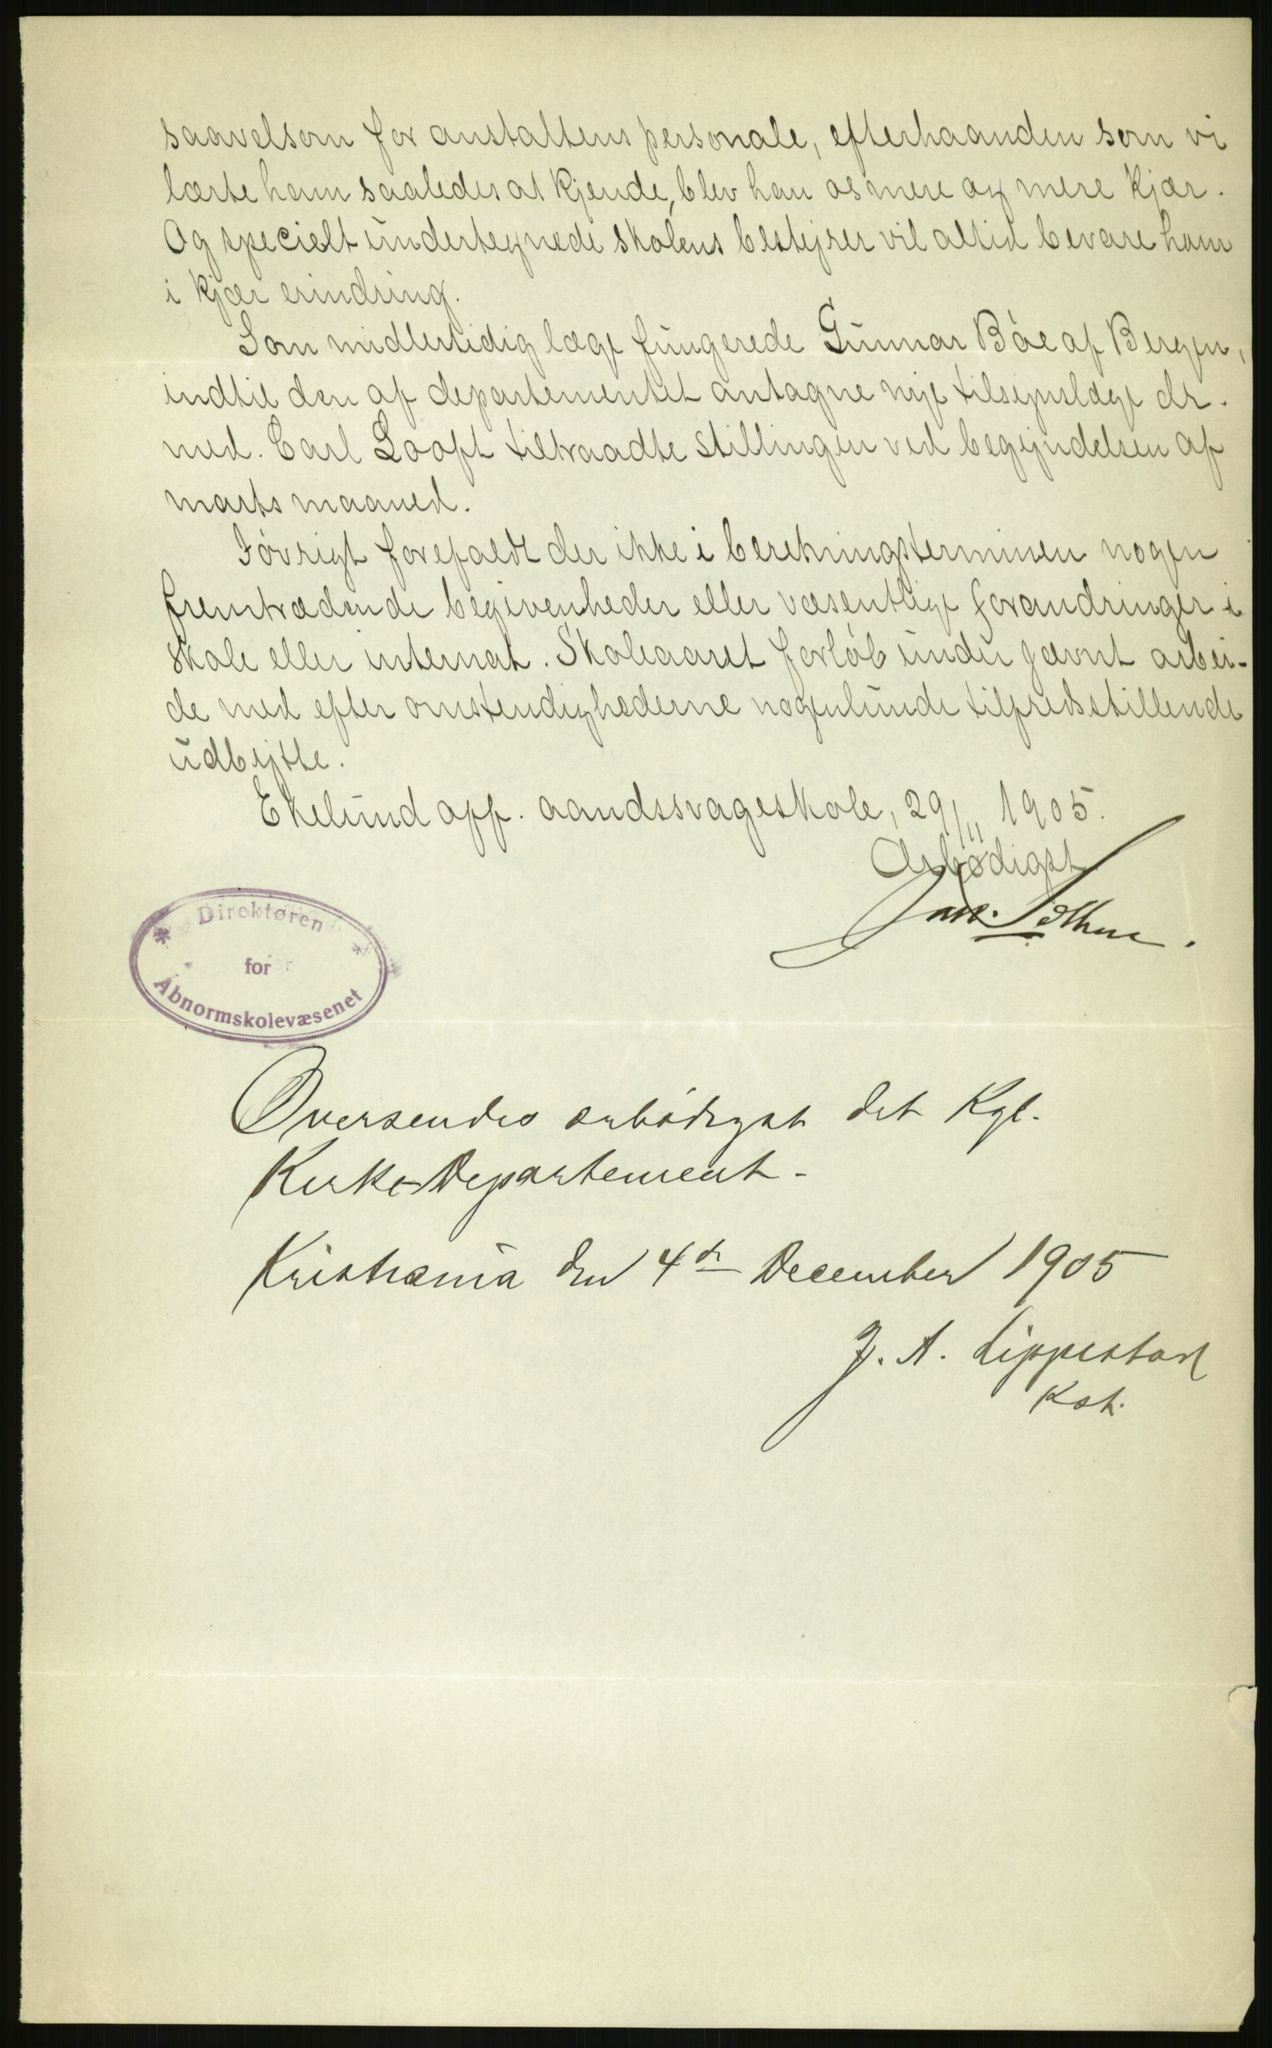 saavelsom for anstaltens personale, efterhaanden som vi
lærte ham saaledes at kjende, blev han os mere og mere kjær.
Og specielt undertegnede skolens bestyrer vil altid bevare ham
i kjær erindring.
Som midlertidig læge fungerede Gunnar Böe af Bergen,
indtil den af departementet antagne nye tilsynslæge dr.
med. Carl Looft tiltraadte stillingen ved begyndelsen af
marts maaned.
Iøvrigt forefaldt der ikke i beretningsterminen nogen
fremtrædende begivenheder eller væsentlige forandringer i
skole eller internat. Skoleaaret forløb under jævnt arbei-
de med efter omstendighederne nogenlunde tilfredsstillende
udbytte.
Ekelund off. aandssvageskole, 29/11 1905.
Ærbødigst
Direktøren
for
Abnormskolevæsenet
Oversendes ærbødigst det Kgl.
Kirke-Departement.
Kristiania den 4de December 1905
J. A. Lippestad
Kst.